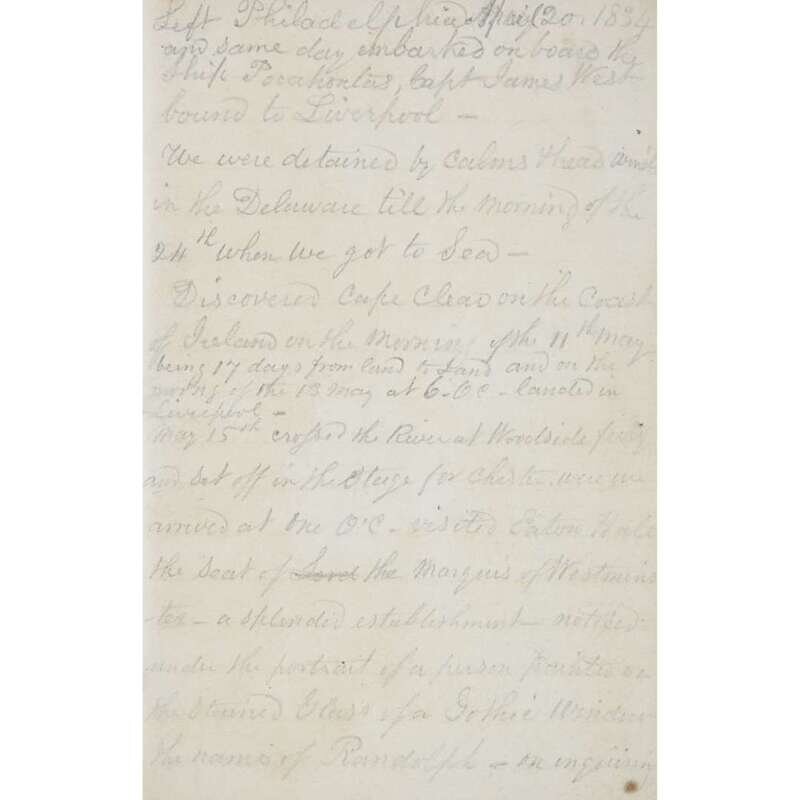 Left Philadelphia April 20 1834
and same day embarked on board the
Ship Pocahontas, Capt James West
bound to Liverpool —
We were detained by Calms & head winds
in the Delaware till the morning of the
24th when we got to Sea —
Discovered Cape Clear on the Coast
of Ireland on the Morning of the 11th May
being 17 days from land to Land and on the
morng of the 13 May at 6 - OC - landed in
Liverpool —
May 15th crossed the River at Woodside ferry
and set off in the Stage for Chester were we
arrived at One O'C - visited Eaton Hall
the Seat of Lord the Marquis of Westmins
-ter - a splendid establishment - noticed
under the portrait of a person painted on
the Stained Glass of a Gothic Window
the name of Randolph - on inquiring